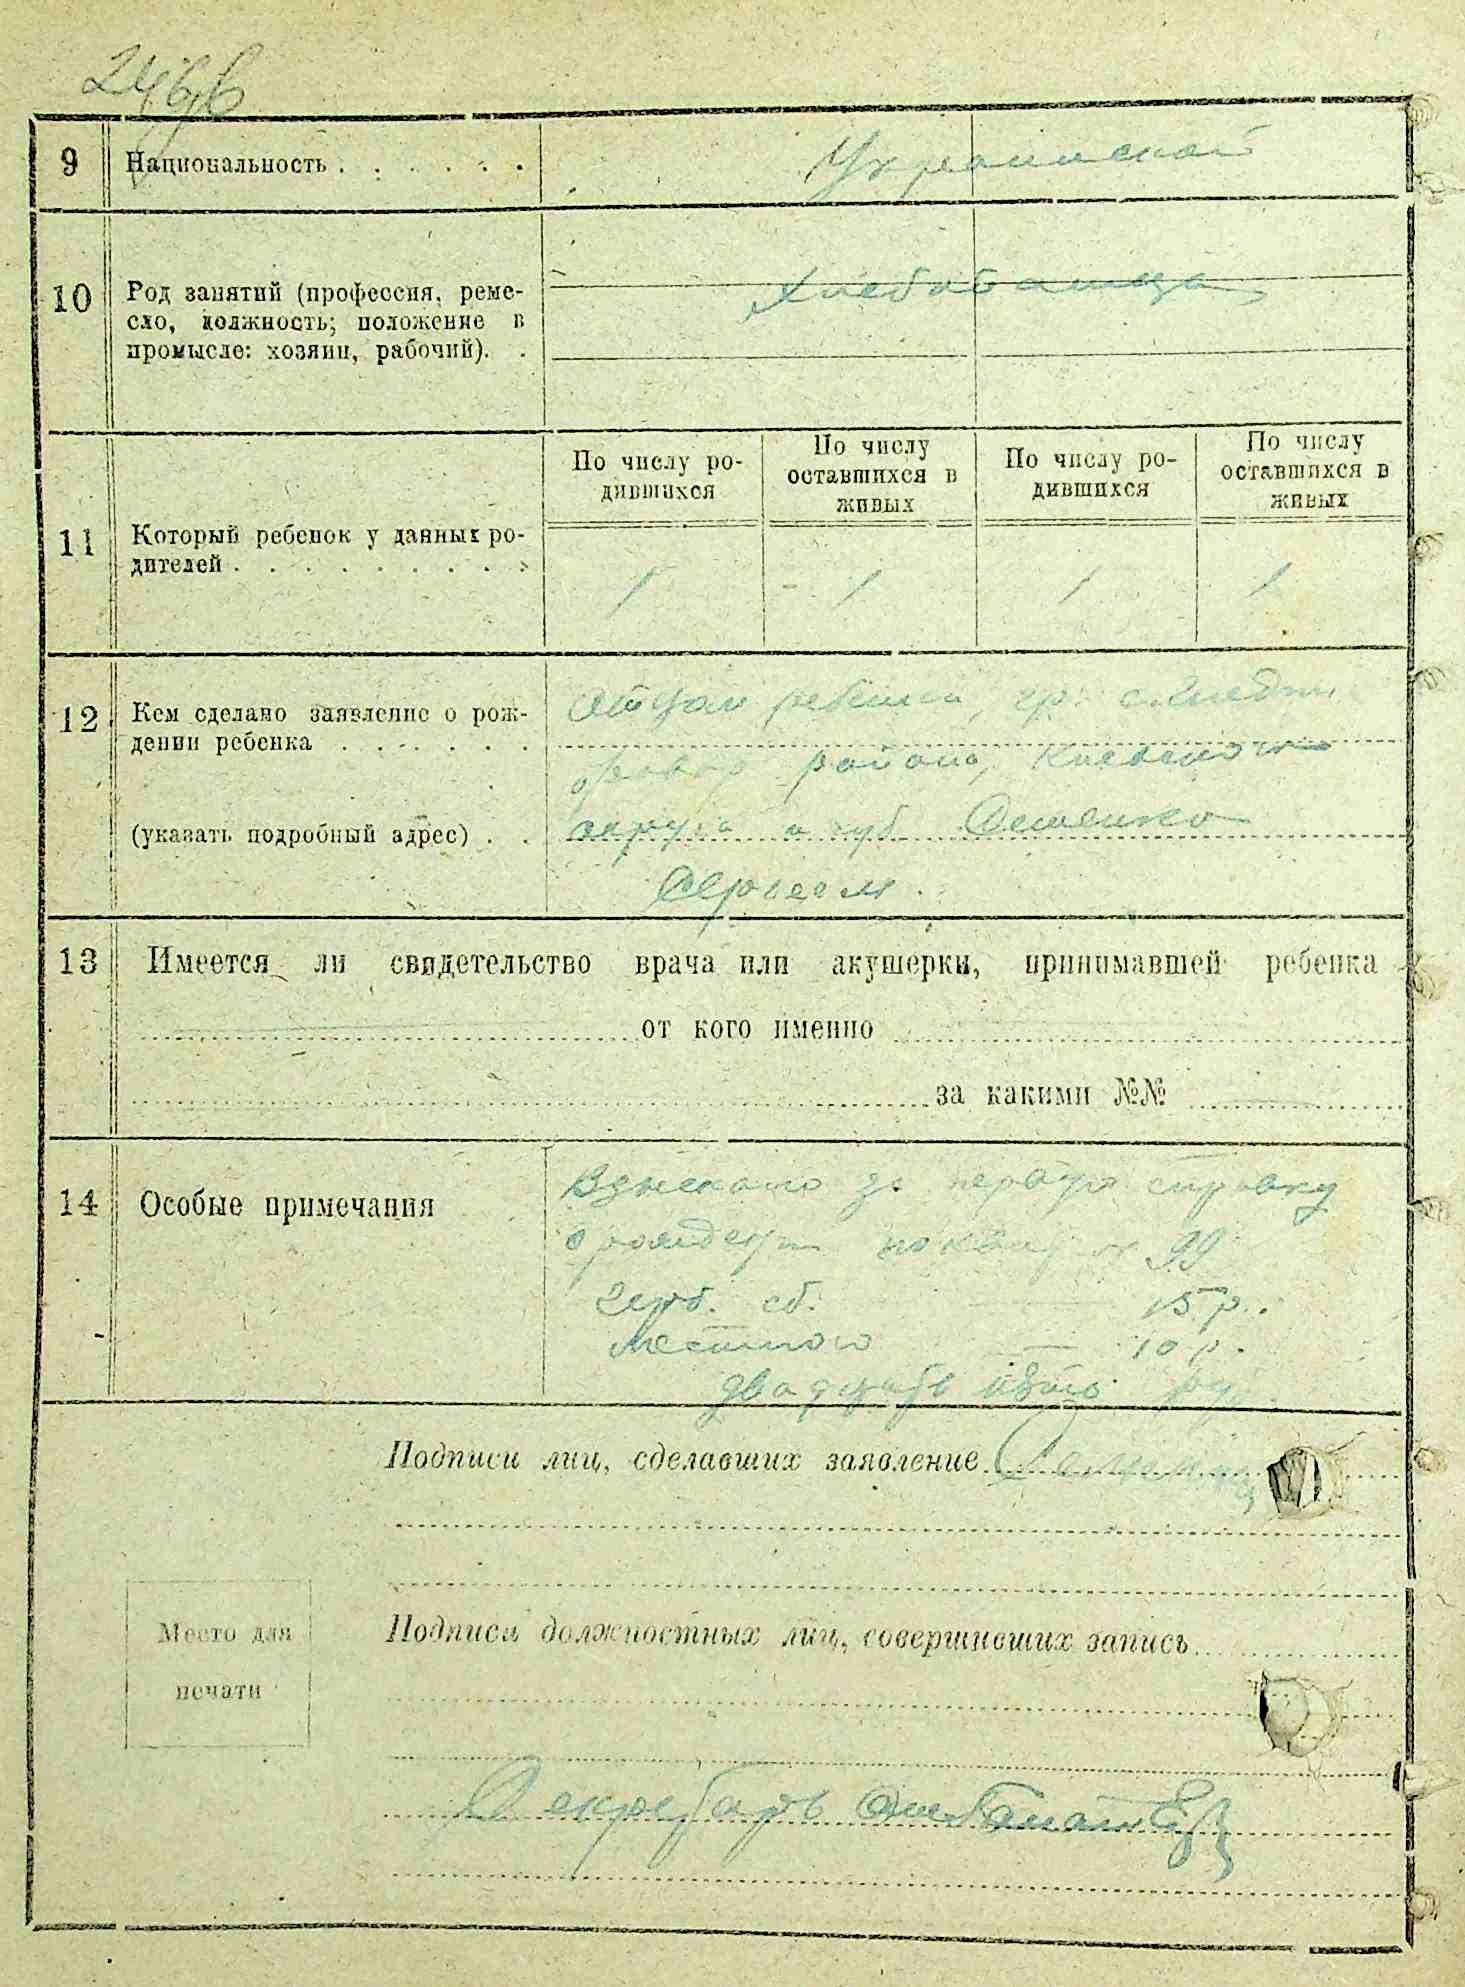 9 Национальность . . . . . . . Украинской
10 Род занятий (профессия, реме-
сло, должность; положение в
промысле: хозяин, рабочий). .
По числу ро-
дившихся
По числу
оставшихся в
живых
По числу ро-
дившихся
По числу
оставшихся в
живых
11 Который ребенок у данных ро-
дителей . . . . . . . . . .
1 1 1 1
12 Кем сделано заявление о рож-
дении ребенка . . . . . . .
(указать подробный адрес) . .
ребенка, гр.
района, Киевского
округа и губ
Сергеем.
13 Имеется ли свидетельство врача или акушерки, принимавшей ребенка
от кого именно
за какими №№
14 Особые примечания
Взыскано за первую справку
о рождении 99
герб. сб. 15 р.
местного — 10 р.
двадцать пять руб.
Подписи лиц, сделавших заявление
Подписи должностных лиц, совершивших запись
Место для
печати
Секретарь